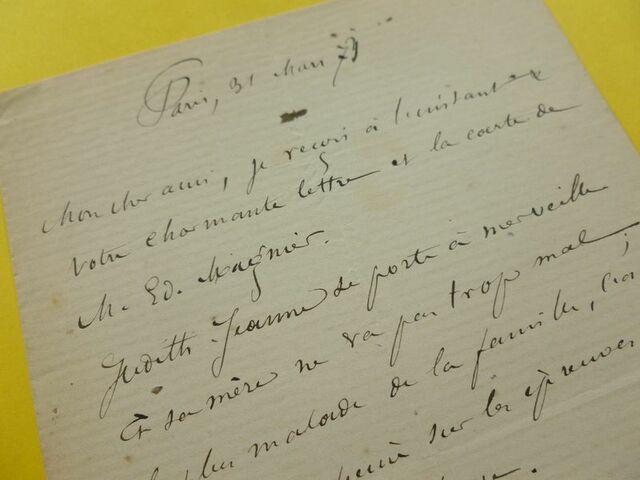 Paris, 31 Mars 73
Mon cher ami, je reçois à l'instant
votre charmante lettre et la carte de
M. Ed. Magnier.
Judith-Jeanne se porte à merveille
Et sa mère ne va pas trop mal ;
plus malade de la famille, c'a
sur les épreuves